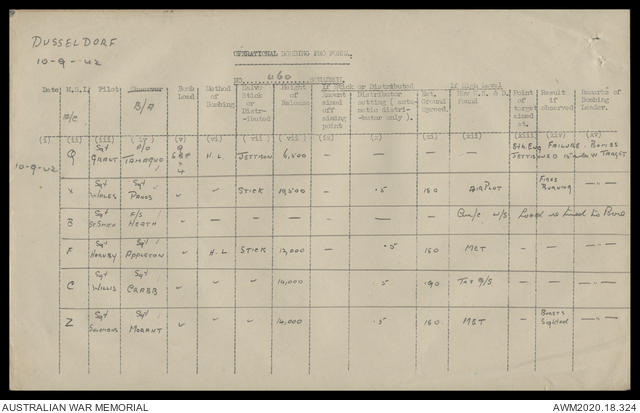 DUSSELDORF
10-9-42
OPERATIONAL BOMBING PRO FORMA.
NO. 460 SQUADRON.
Date: M.S.I. A/c Pilot: Observer B/A Bomb Load Method of Bombing. Salvo Stick or Dist-ributed Height of Release. If Stick or Distributed Amount aimed off aiming point Distributor setting (auto-matic distri-butor only). Est. Ground Speed. If High Level How G.S. & D. found Point of target aimed at. Result if observed Remarks of Bombing Leader.
(i) (ii) (iii) (iv) (v) (vi) (vii) (viii) (ix) (x) (xi) (xii) (xiii) (xiv) (xv)
10-9-42 Q Sgt GRANT P/O H.L. JETTISON 6,500 - - - - Stb. Eng FAILURE. BOMBS JETTISONED W TARGET
X Sgt WALES Sgt STICK 10,500 - .5 150 AIR PLOT FIRES BURNING
B Sgt F/S HEATH - - - - U/S
F Sgt HORNBY Sgt APPLETON H.L STICK 12,000 .5 160 MET
C Sgt WILLIS Sgt CRABB 14,000 .5 G/S
Z Sgt Sgt MORANT 14,000 .5 160 MET BURSTS Sighted
AUSTRALIAN WAR MEMORIAL AWM2020.18.324